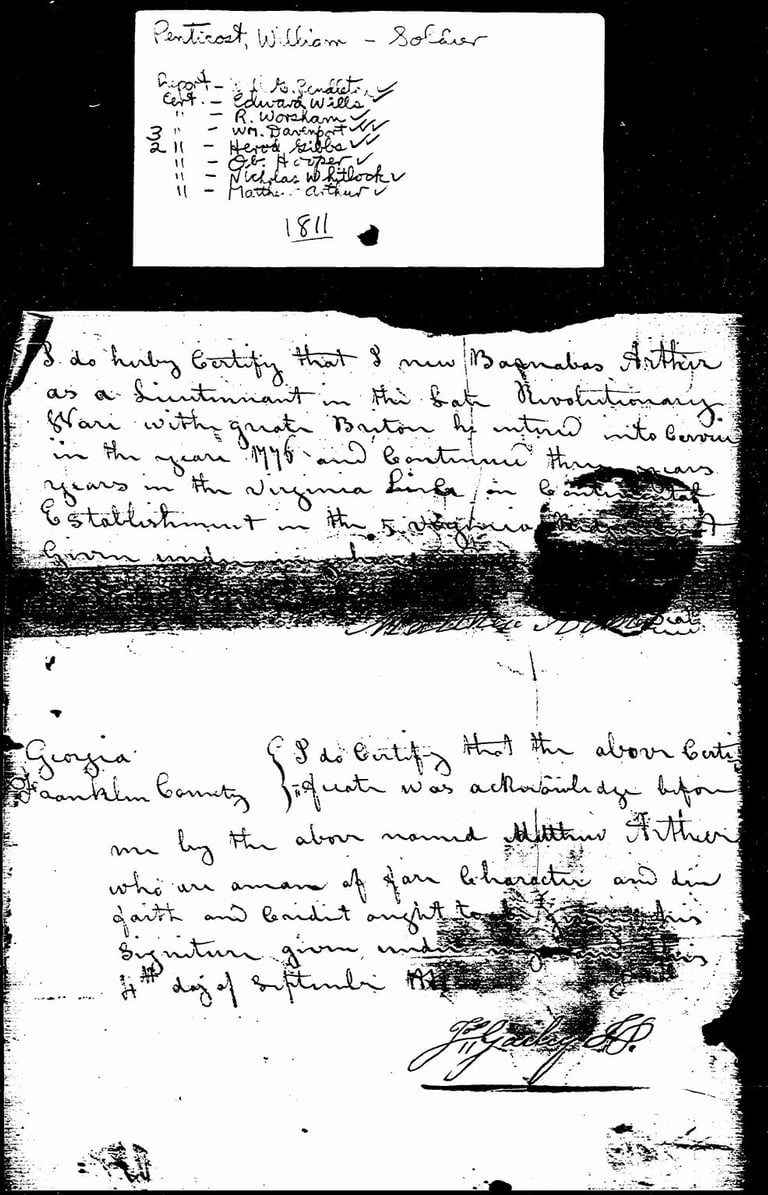 Penticost, William - Soldier
Report - Pendleton
Cert. - Edward Wills
" - R. Worsham
3 " - Wm. Davenport
2 " - Herod Gibbs
" - Ob. Hooper
" - Nicholas Whitlock
" - Matthew Arthur
1811
I do herby Certify that I new Barnabas Arthur
as a Lieutennant in the Late Revolutionary
Ware with grate Briton he intered into Service
in the yeare 1776 and Continued three years
years in the Virginia Line on Continental
Establishment in the 5 Virginia
Given under
Matthew Seal
Georgia
Franklin County
I do Certify that the above Certi
=fycate was acknowledge before
me by the above named Matthew Arthur
who are a man of fare Character and due
faith and Credit ought to his
Signiture given under this
4th day of September
Jos Gailey J.P.